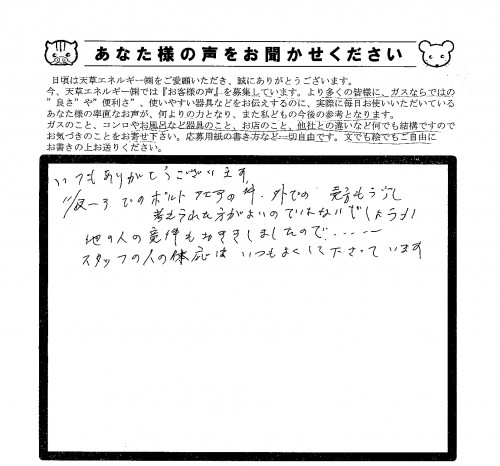 あなた様の声をお聞かせください
日頃は天草エネルギー㈱をご愛顧いただき、誠にありがとうございます。
今、天草エネルギー㈱では『お客様の声』を募集しています。より多くの皆様に、ガスならではの
”良さ”や”便利さ”、使いやすい器具などをお伝えするのに、実際に毎日お使いいただいている
あなた様の率直なお声が、何よりの力となり、また私どもの今後の参考となります。
ガスのこと、コンロやお風呂など器具のこと、お店のこと、他社との違いなど何でも結構ですので
お気づきのことをお寄せ下さい。応募用紙の書き方など一切自由です。文でも絵でもご自由に
お書きの上お送りください。
いつもありがとうございます。
での の件、外での
考えられた方がよいのではないでしょうか
他の人の意件もおききしましたので、
スタッフの人の体応は いつもよくして下さっています